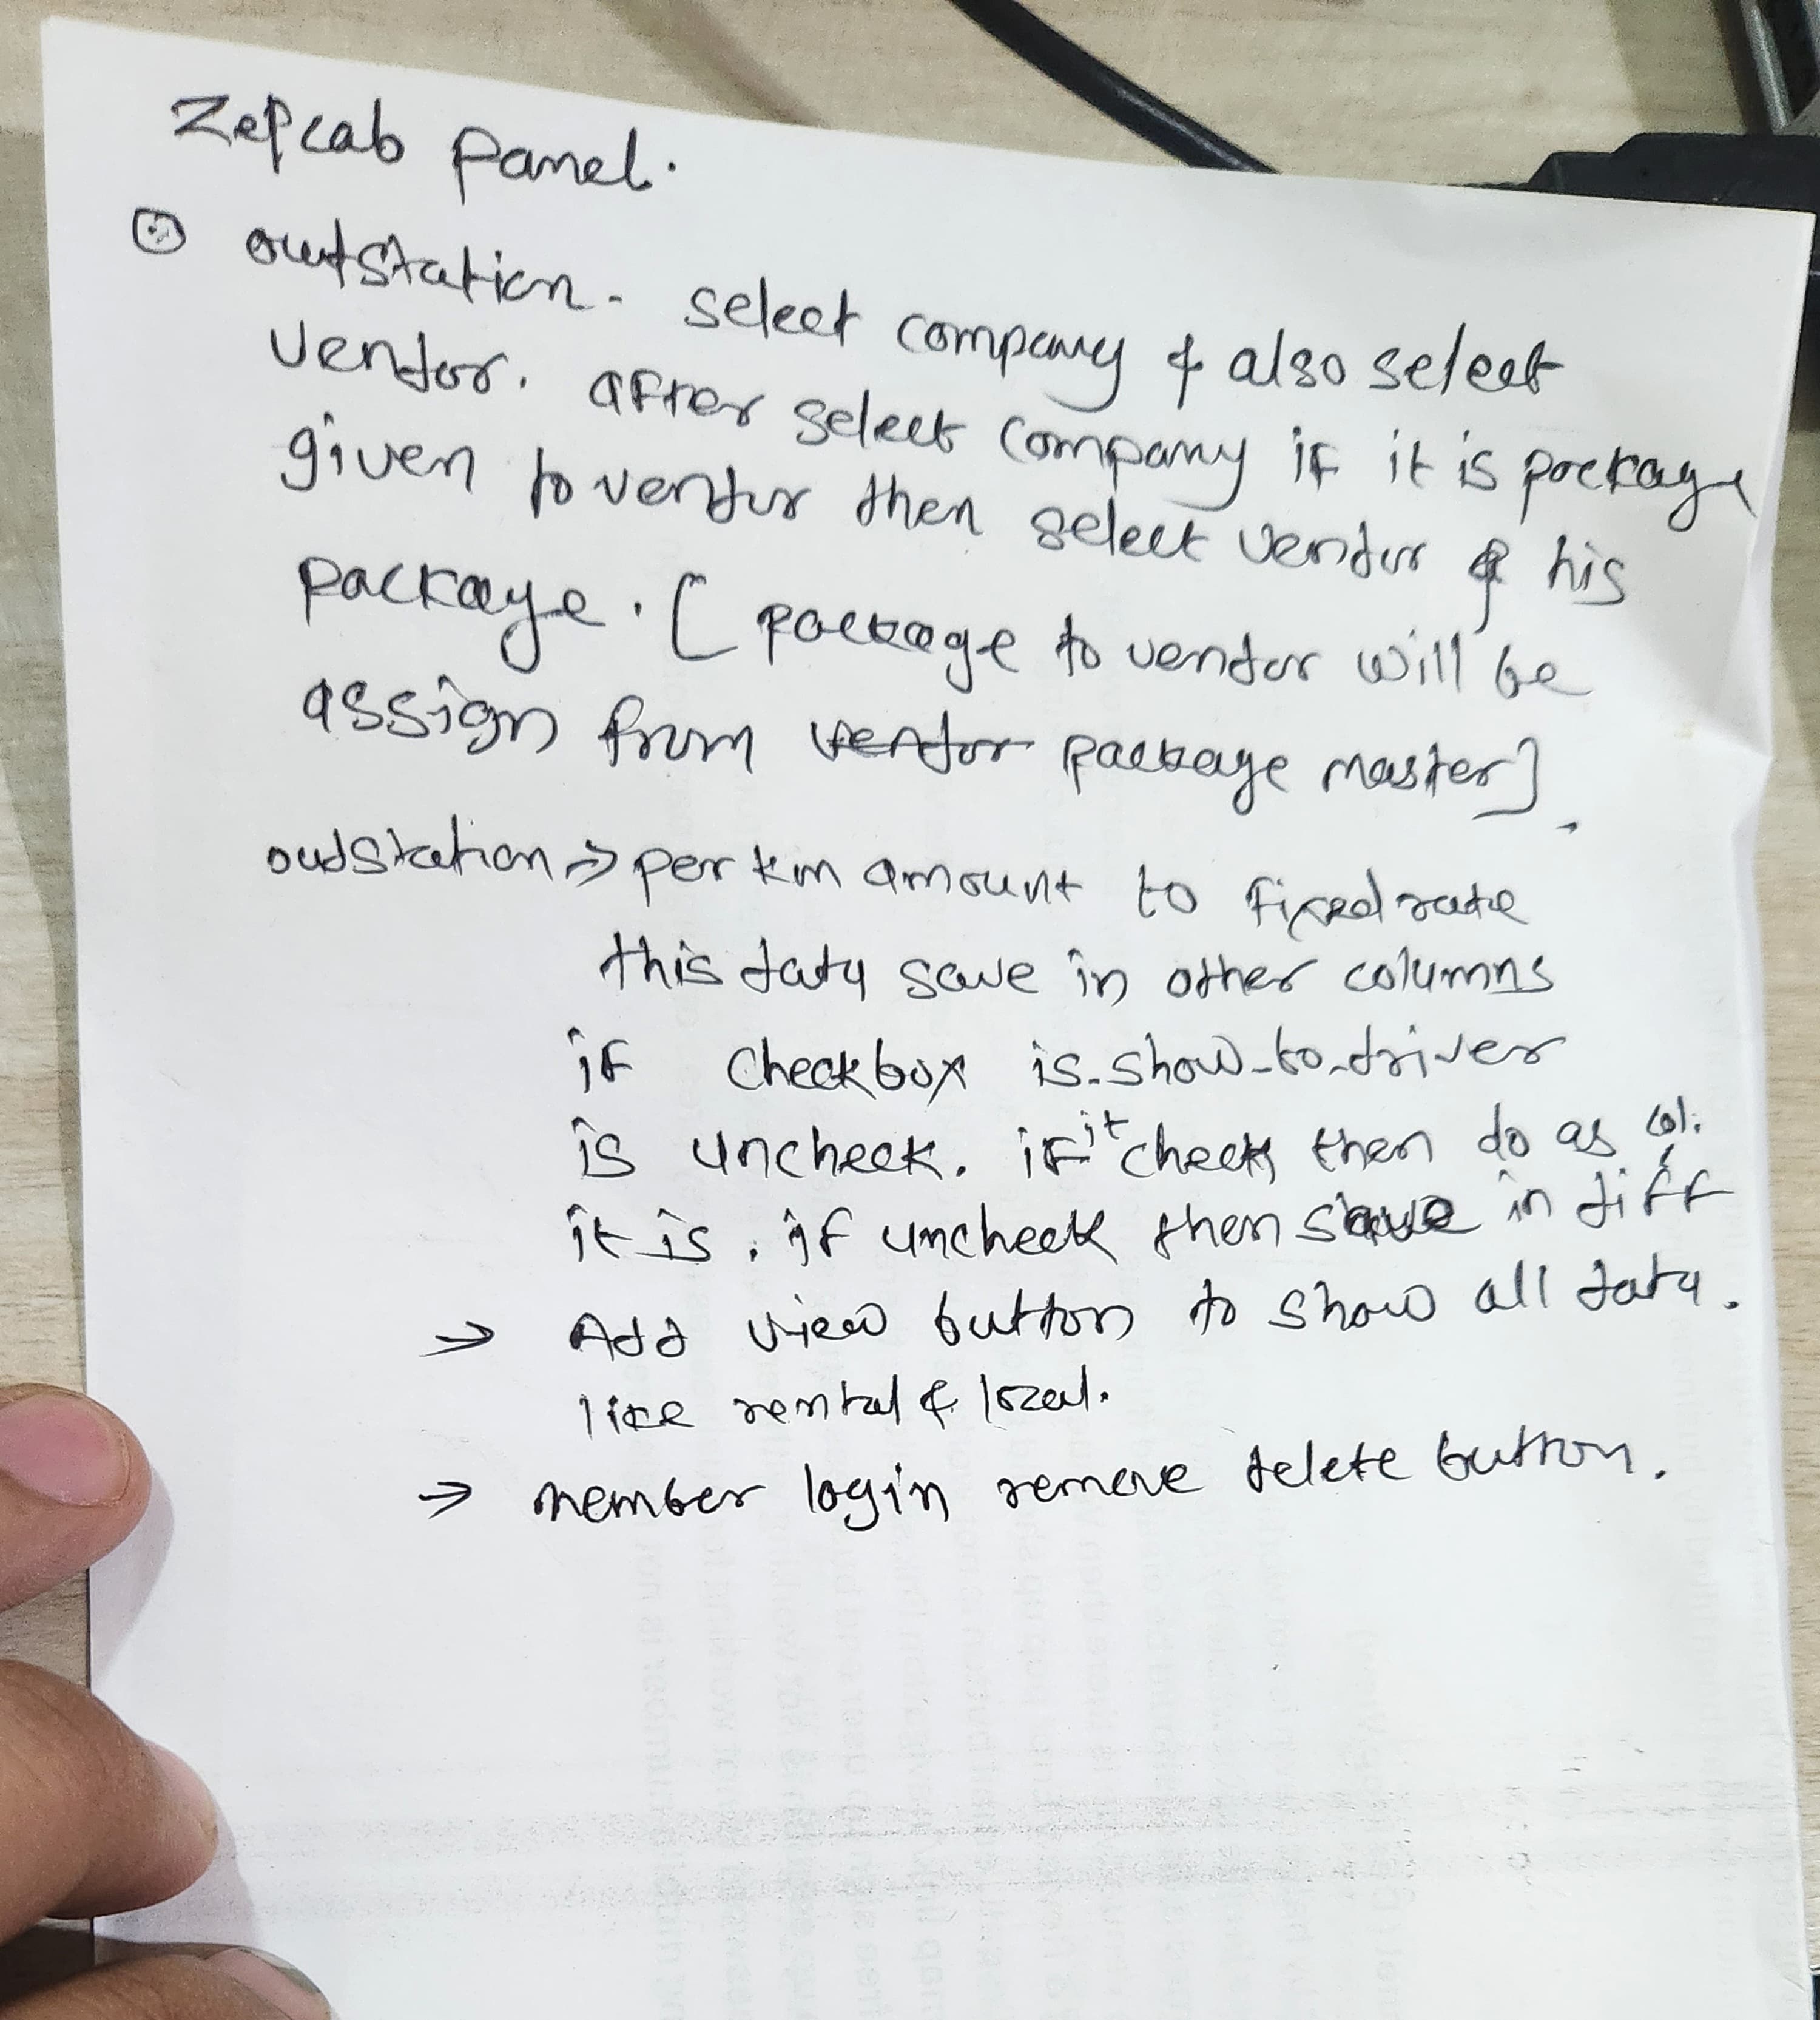 Zepcab panel.
⊙ outstation - select company & also select
vendor. after select company if it is package
given to vendor then select vendor & his
package. [package to vendor will be
assign from vendor package master].
outstation => per km amount to fixed rate
this data save in other columns
if checkbox is-show-to-driver
is uncheck. if it check then do as
it is. if uncheck then save in diff col.
-> Add view button to show all data.
like rental & local.
-> member login remove delete button.